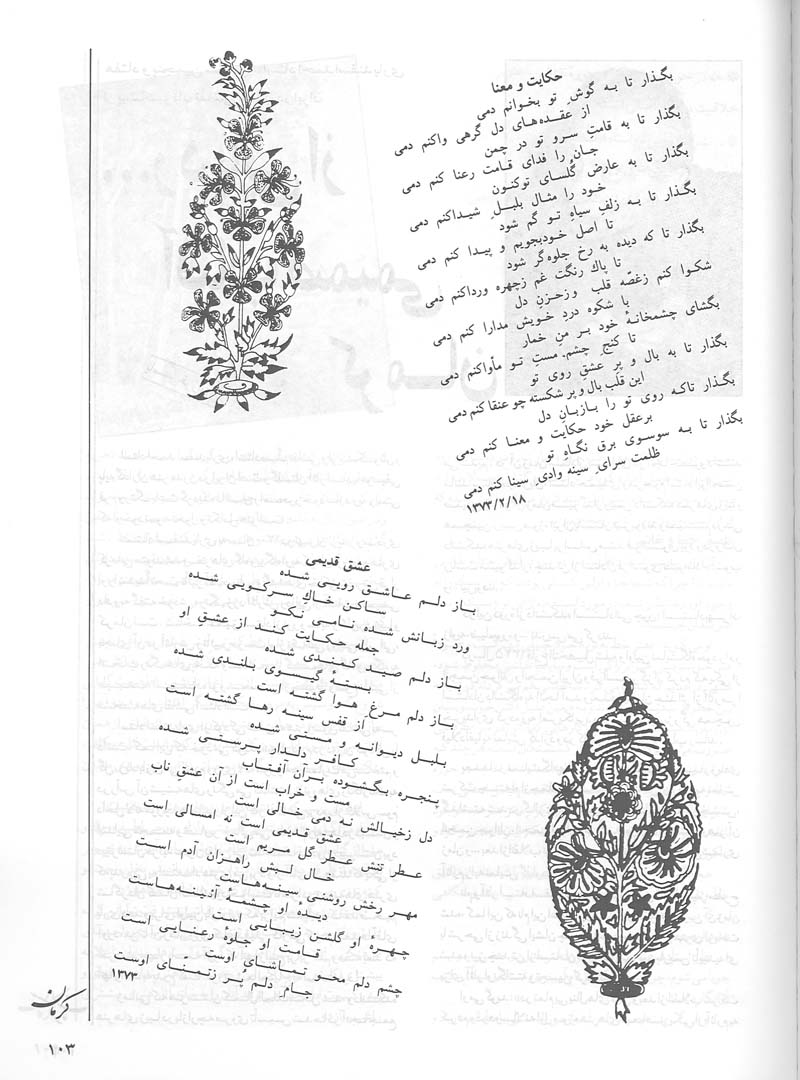 حکایت و معنا
بگذار تا بـه گوشِ تو بخوانم دمی
از عقده‌های دل گرهی واکنم دمی
بگذار تا به قامتِ سرو تو در چمن
جان را فدای قامت رعنا کنم دمی
بگذار تا به عارض گلسای توکنون
خود را مثال بلبل شیداکنم دمی
بگذار تا بـه زلفِ سیاهِ تـو گم شود
تا اصل خودبجویم و پیدا کنم دمی
بگذار تا که دیده به رخ جلوه‌گر شود
تا پاك رنگت غم زچهره ورداکنم دمی
شکوا کنم زغصّه قلب وزحزنِ دل
با شکوه دردِ خویش مدارا کنم دمی
بگشای چشمخانهٔ خود بـر منِ خمار
تا کنجِ چشمِ مستِ تـو مأواکنم دمی
بگذار تا به بال و پرِ عشقِ روی تو
این قلب بال و پر شکسته چو عنقا کنم دمی
بگذار تاکـه روی تو را بـازبـانِ دل
برعقل خود حکایت و معنـا کنم دمی
بگذار تا بـه سوسوی برق نگـاهِ تو
ظلمت سرای سینه وادیِ سینا کنم دمی
۱۳۷۳/۲/۱۸
عشق قدیمی
بـاز دلـم عـاشـق رویـی شده
ساکـن خـاكِ سـرکـویی شـده
ورد زبـانش شده نامـی نـکـو
جمله حکـایت کنـد از عشق او
بـاز دلم صیـد کـمنـدی شده
بستـهٔ گیـسـوی بلنـدی شـده
بـاز دلم مـرغ هـوا گشته است
از قفس سینه رهـا گشتـه است
بـلبـل دیـوانـه و مستـی شده
کـافـر دلـدار پـرستـی شـده
پنجره بـگشـوده بـرآن آفتـاب
مست و خراب است از آن عشقِ ناب
دل زخیالش نـه دمی خـالی است
عشق قدیمی است نه امسالی است
عطـر تنش عطـر گل مریـم است
خـال لبـش راهـزنِ آدم است
مهـر رخش روشنی سینـه‌هـاست
دیدهٔ او چشمهٔ آئینه‌هـاست
چهـرهٔ او گلشن زیبـایی است
قـامت او جلـوهٔ رعنـایی است
چشم دلم محـو تمـاشـای اوست
جـام دلم پُـر زتمنّـای اوست
۱۳۷۳
کرمان
۱۰۳